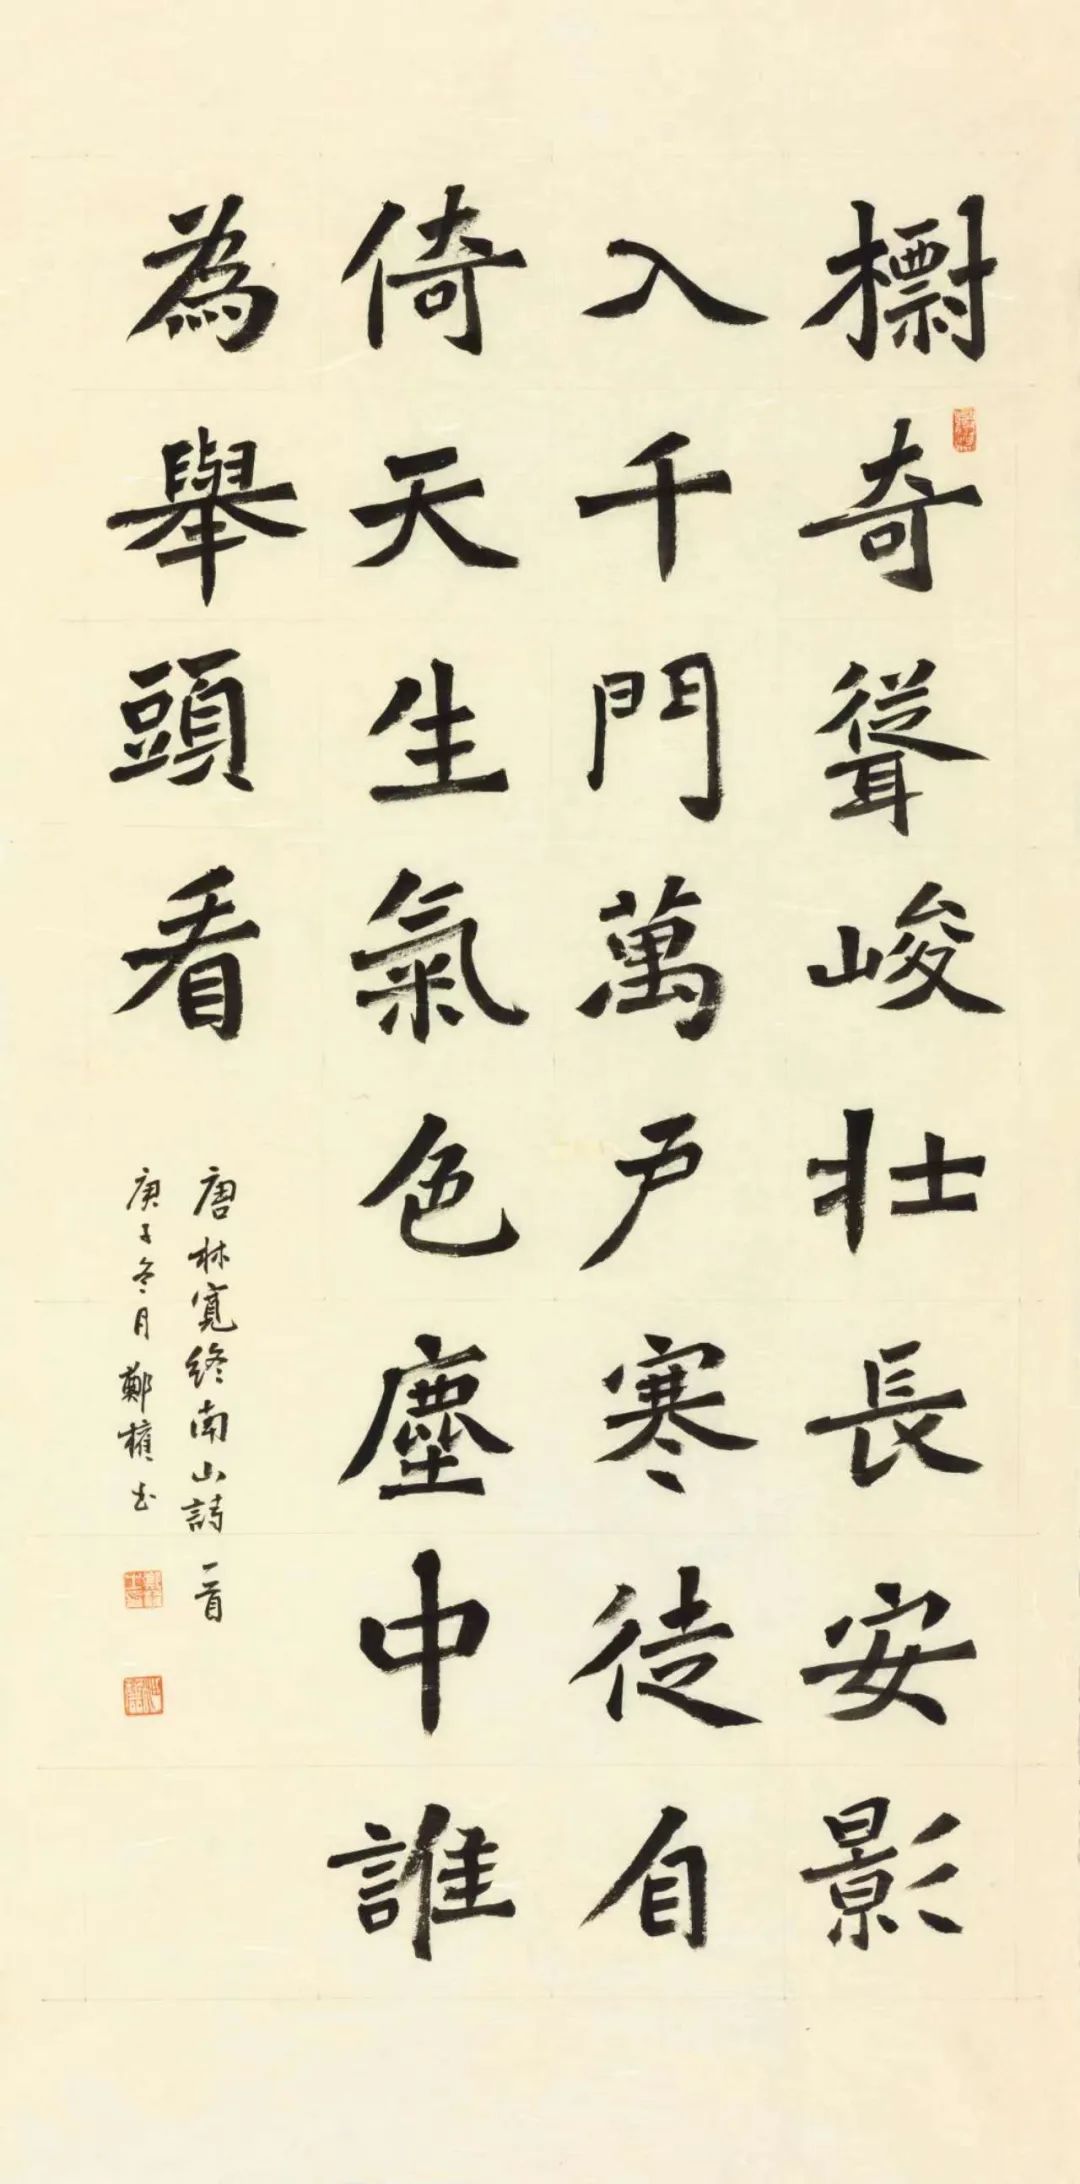 檦奇聳峻壯長安影
入千門萬户寒徒自
倚天生氣色塵中誰
為舉頭看
唐林寬終南山詩一首
庚子冬月鄭书